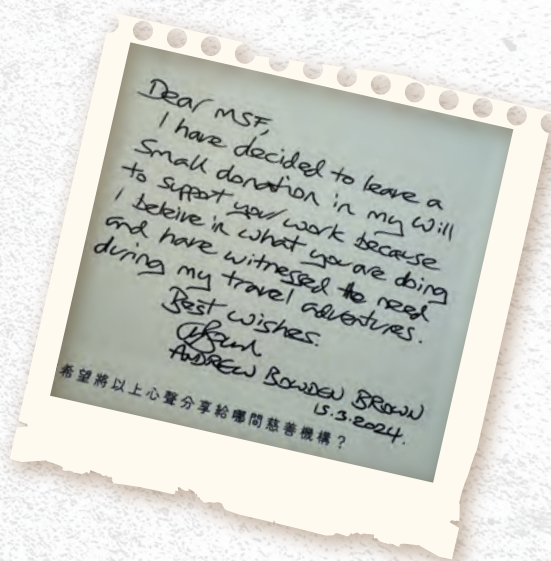 Dear MSF,
I have decided to leave a
small donation in my will
to support your work because
I beleive in what you are doing
and have witnessed the need
during my travel adventures.
Best wishes.
ANDREW BOWDEN BROWN
15.3.2024.
希望將以上心聲分享給哪間慈善機構？